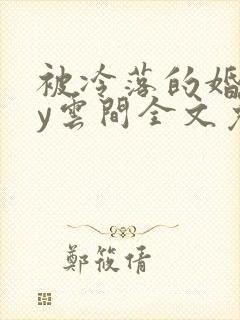 被冷落的婚
y雲間全文
鄭筱倩